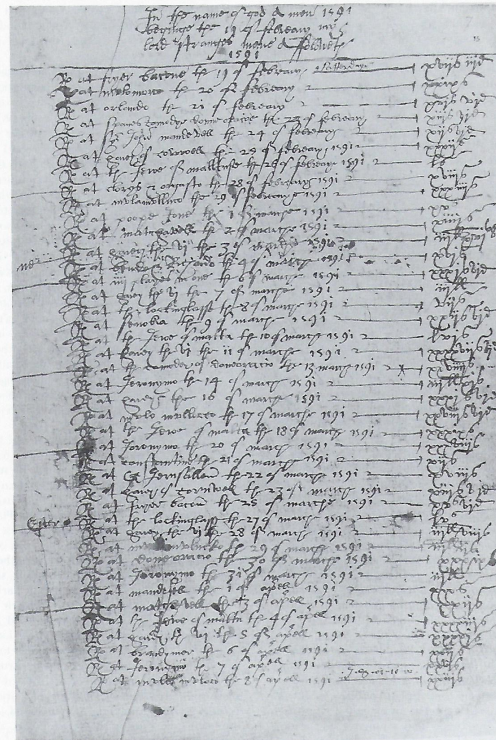 In the name of god Amen 1591
beginge the 19 of febreary my
lord stranges mene A ffoloweth
1591
R at fryer bacvne the 19 of febreary satterdaye xvijs iijd
R at mvlomvrco the 20 of febreary xxixs
R at orlando the 21 of febreary xvjs vjd
R at spanes comodye donne oracioe the 23 of febreary xiijs vjd
R at syr John mandevell the 24 of febreary xijs vjd
R at harey of cornwell the 25 of febreary 1591 xxxijs
R at the Jewe of malltuse the 26 of febreary 1591 ls
R at clorys & orgasto the 28 of febreary 1591 xviijs
R at mvlamvlluco the 29 of febreary 1591 xxxiiijs
R at poope Jone the 1 of marche 1591 xvs
R at matchavell the 2 of marche 1591 xiiijs
ne R at harey the vj the 3 of marche 1591 iijli
R at the 4 of marche 1591 xvjs
R at iiij playes in one the 6 of marche 1591 xxxjs vjd
R at harey the vj the 7 of marche 1591 iijli
R at the lockinglasse the 8 of marche 1591 vijs
R at senobia the 9 of marche 1591 xxijs vjd
R at the Jewe of malta the 10 of marche 1591 lvjs
R at harey the vj the 11 of marche 1591 xxxxvijs vjd
R at the comodey of doneoracio the 13 marche 1591
R at Jeronymo the 14 of marche 1591 iijli xjs
R at harey the 16 of marche 1591 xxxjs vjd
R at mvlo mvlluco the 17 of marche 1591 xxviijs vjd
R at the Jewe of malta the 18 of marche 1591 xxxixs
R at Joronymo the 20 of marche 1591 xxxviijs
R at constantine the 21 of marche 1591 xijs
R at Jerusallem the 22 of marche 1591 xviijs
R at harey of cornwell the 23 of marche 1591 xiijs vjd
R at fryer bacon the 25 of marche 1591 xvs vjd
Ester R at the lockinglasse the 27 of marche 1591 lvs
R at harey the vj the 28 of marche 1591 iijli viijs
R at the 29 of marche 1591 iijli ijs
R at doneoracio the 30 of marche 1591 xxxixs
R at Joronymo the 31 of marche 1591 iijli
R at mandefell the 1 of aprell 1591 xxxs
R at matchevell the 3 of aprell 1591 xxijs
R at the Jewe of malta the 4 of aprell 1591 xxxxiijs
R at harey the vj the 5 of aprell 1591 xxxxjs
R at brandymer the 6 of aprell 1591 xxijs
R at Jeronymo the 7 of aprell 1591 xxvjs
R at mvle mvloco the 8 of aprell 1591 xxiijs